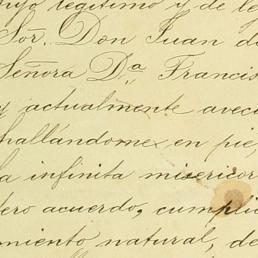 hijo legítimo y de le
Sor. Don Juan de
Señora Da Francis
y actualmente avec
hallándome en pie,
la infinita misericor
dero acuerdo, cumplid
miento natural, de